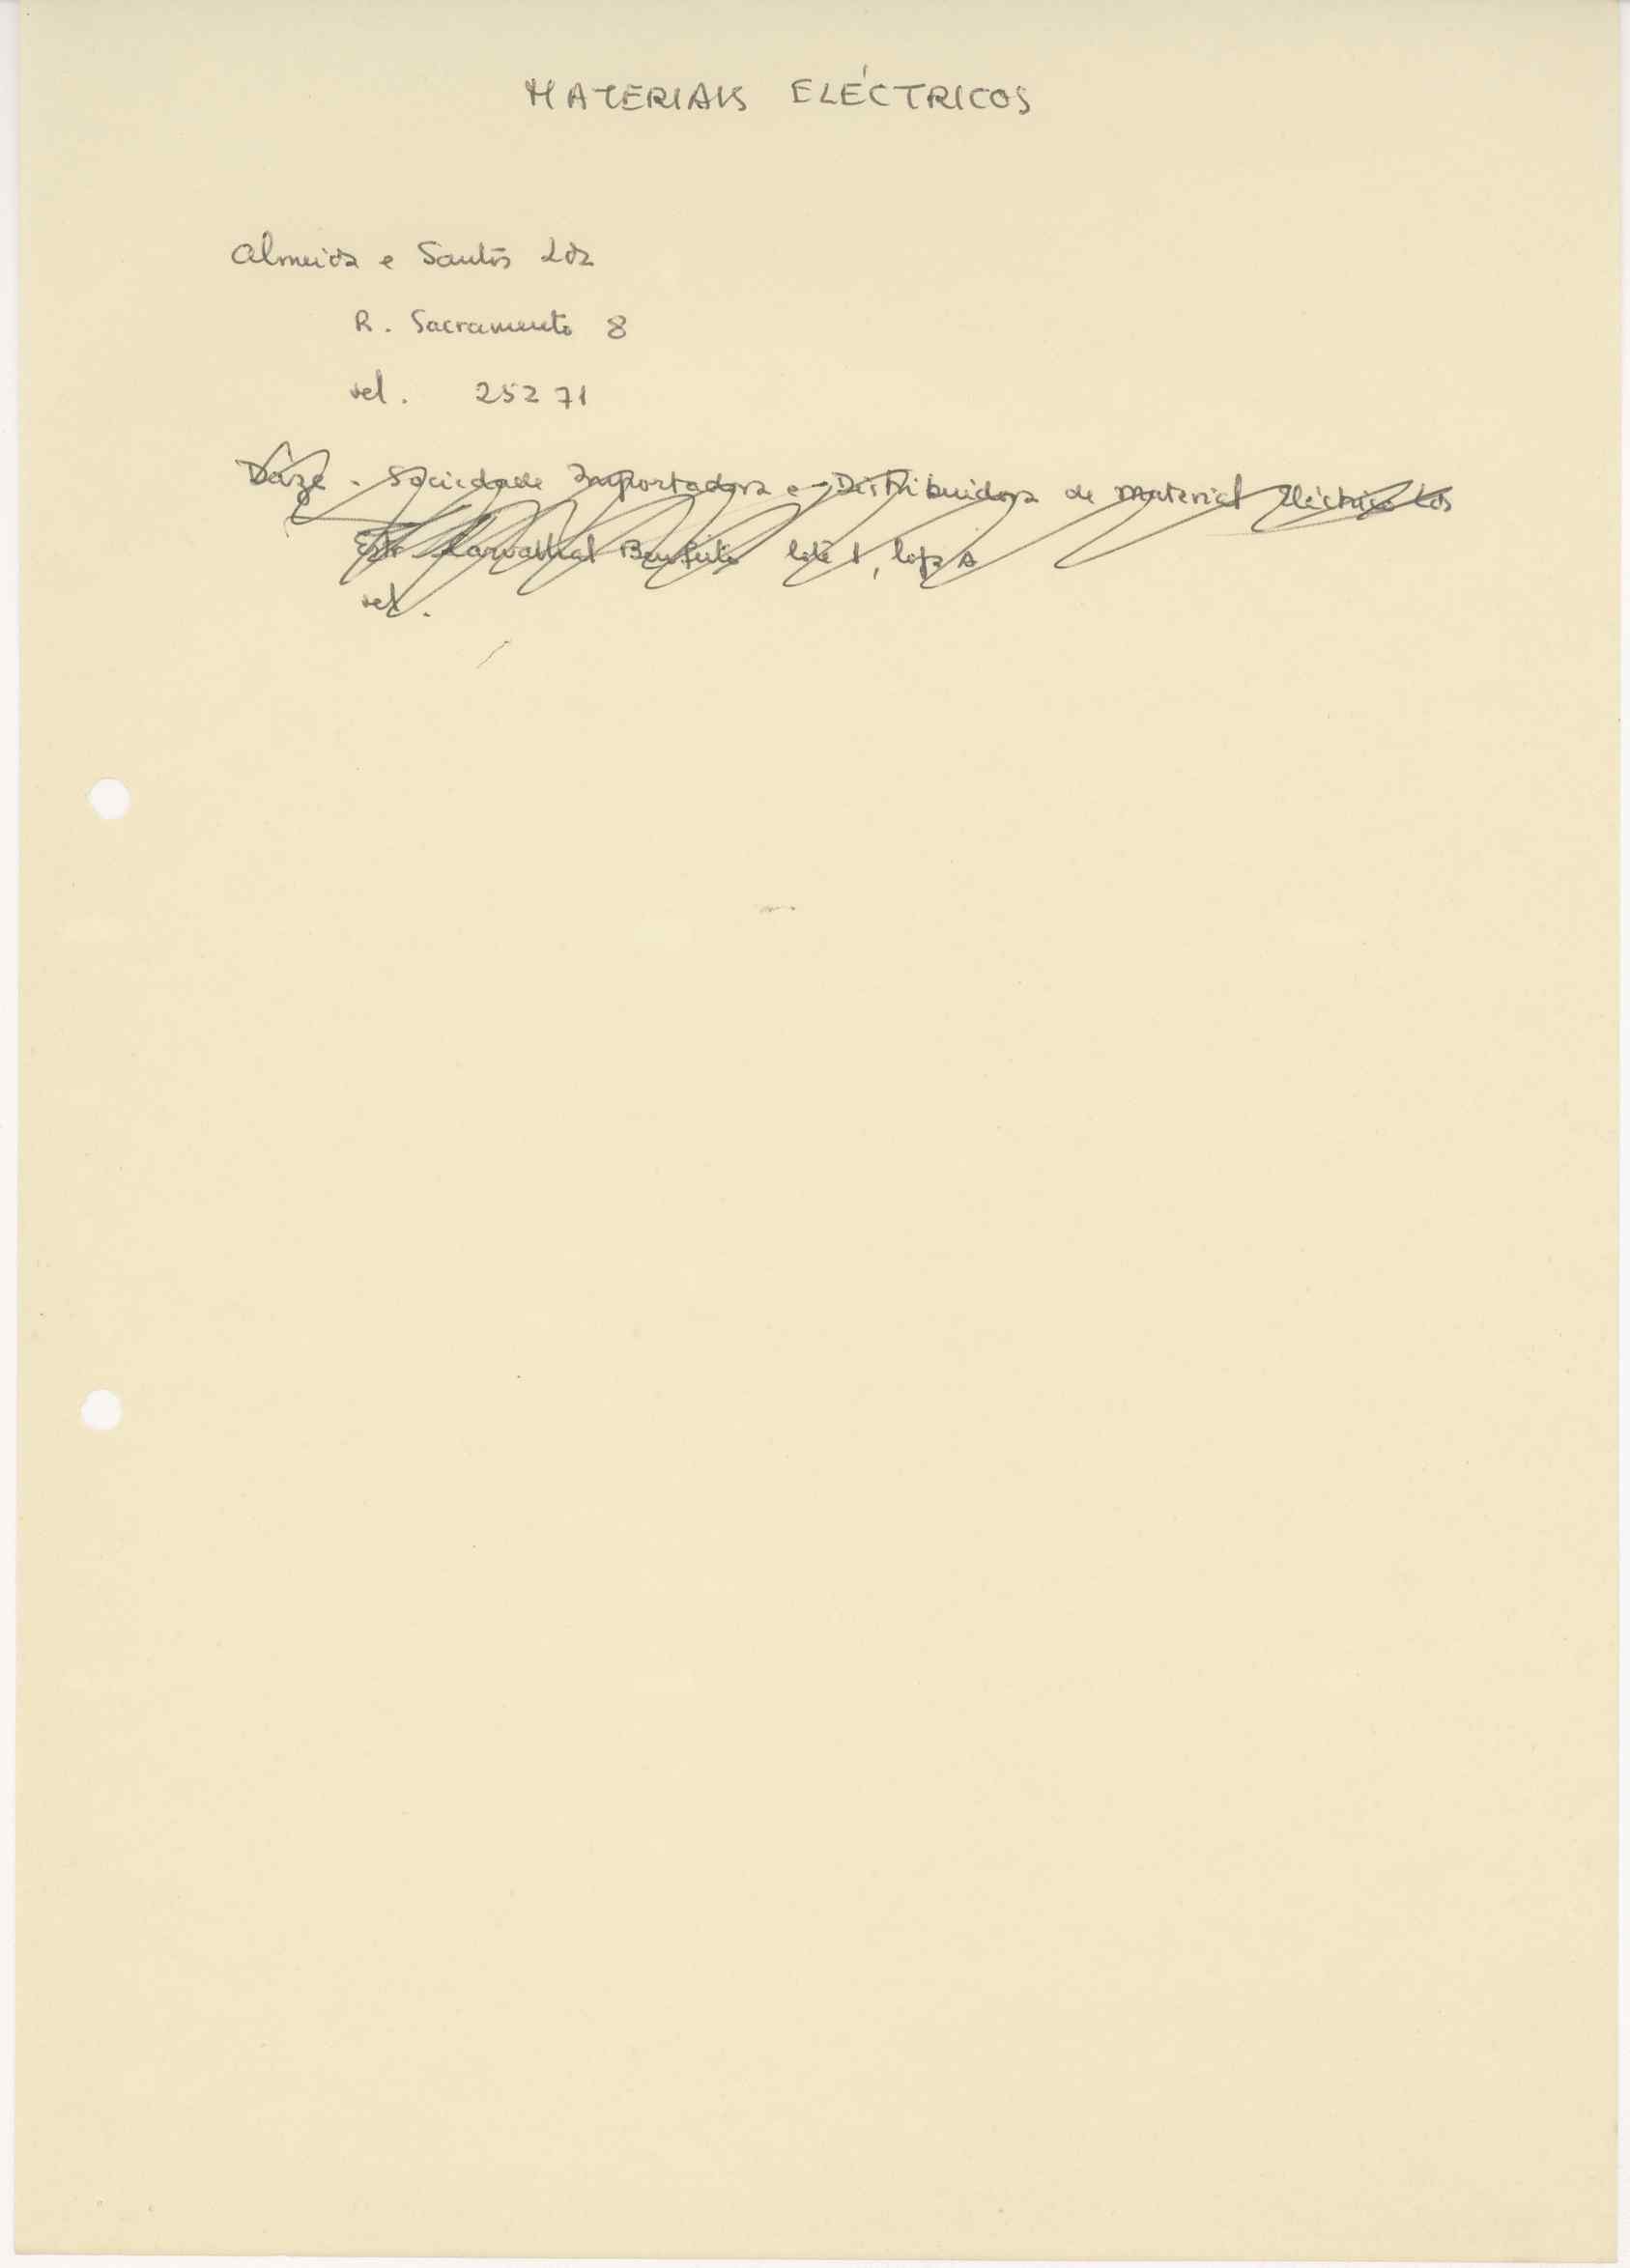 MATERIAIS ELÉCTRICOS
Almeida e Santos Lda
R. Sacramento 8
tel. 252 71
Sociedade Importadora e Distribuidora de Material Eléctrico Lda
Benfica lote 1, loja A
tel.